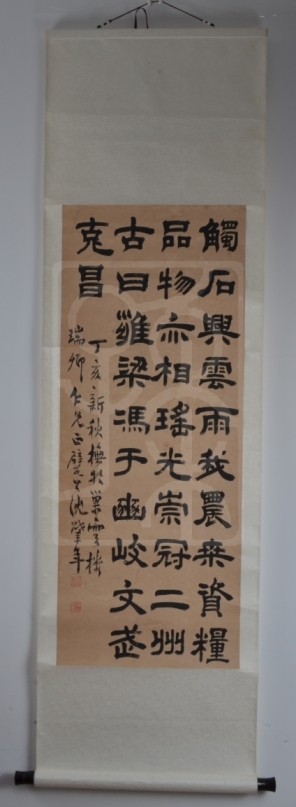 觸石興雲雨我農桑資糧
品物亦相瑤光崇冠二州
古曰雍梁馮于豳岐文武
克昌
丁亥新秋橅於巢雲樓
瑞卿仁兄正沈肇年